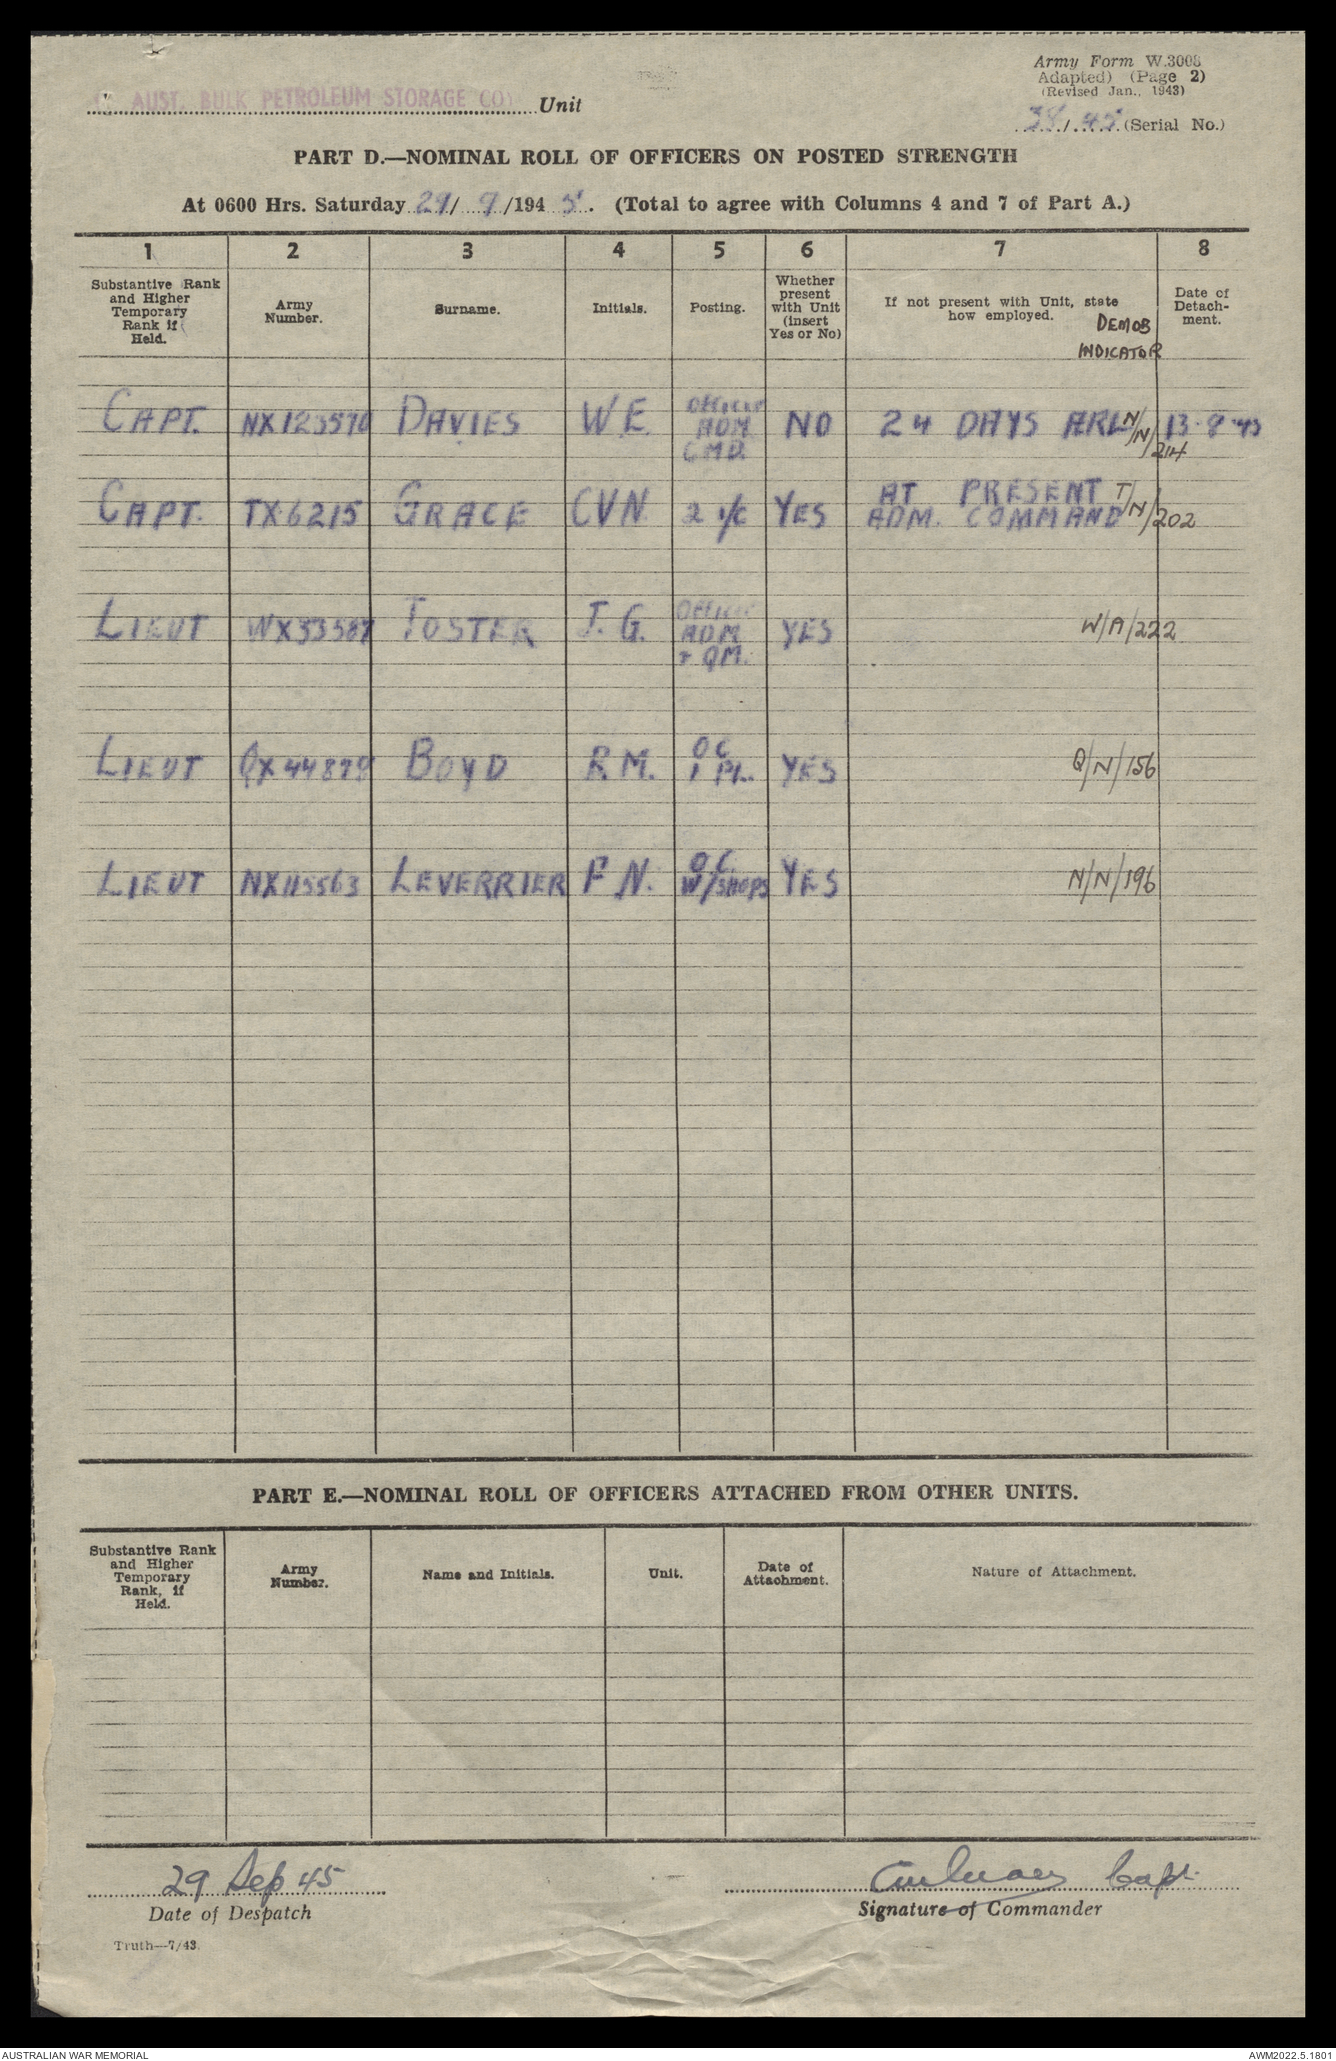 Army Form W.3008
Adapted) (Page 2)
(Revised Jan., 1943)
AUST. BULK PETROLEUM STORAGE COY Unit
38/45 (Serial No.)
PART D.—NOMINAL ROLL OF OFFICERS ON POSTED STRENGTH
At 0600 Hrs. Saturday 29/ 9 /194 5. (Total to agree with Columns 4 and 7 of Part A.)
1 2 3 4 5 6 7 8
Substantive Rank and Higher Temporary Rank if Held. Army Number. Surname. Initials. Posting. Whether present with Unit (insert Yes or No) If not present with Unit, state how employed. Date of Detach-ment.
DEMOB
INDICATOR
CAPT. NX123570 DAVIES W.E. OFFICER ADM CMD. NO 24 DAYS ARL N/N/214 13.8.45
CAPT. TX6215 GRACE CVN. 2 I/C YES AT PRESENT ADM. COMMAND T/N/202
LIEUT WX33587 FOSTER J.G. OFFICER ADM + QM. YES W/A/222
LIEUT QX44879 BOYD R.M. OC 1 PL. YES Q/N/156
LIEUT NX115563 LEVERRIER F N. OC W/SHOPS YES N/N/196
PART E.—NOMINAL ROLL OF OFFICERS ATTACHED FROM OTHER UNITS.
Substantive Rank and Higher Temporary Rank, if Held. Army Number. Name and Initials. Unit. Date of Attachment. Nature of Attachment.
29 Sep 45 Capt.
Date of Despatch Signature of Commander
Truth—7/43.
AUSTRALIAN WAR MEMORIAL AWM2022.5.1801